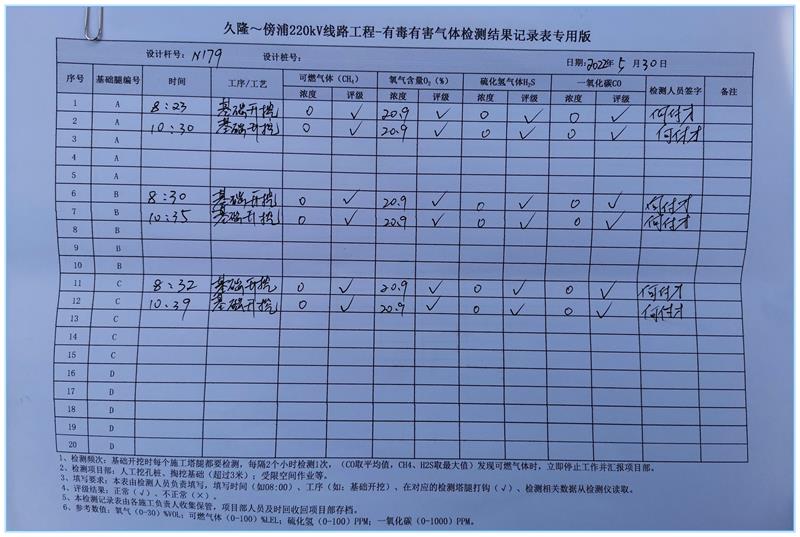 久隆～傍浦220kV线路工程-有毒有害气体检测结果记录表专用版
设计杆号： N179 设计桩号： 日期: 2022年 5 月 30 日
序号 基础腿编号 时间 工序/工艺 可燃气体（CH₄） 氧气含量O₂（%） 硫化氢气体H₂S 一氧化碳CO 检测人员签字 备注
浓度 评级 浓度 评级 浓度 评级 浓度 评级
1 A 8:23 基础开挖 0 ✓ 20.9 ✓ 0 ✓ 0 ✓ 何付才
2 A 10:30 基础开挖 0 ✓ 20.9 ✓ 0 ✓ 0 ✓ 何付才
3 A
4 A
5 A
6 B 8:30 基础开挖 0 ✓ 20.9 ✓ 0 ✓ 0 ✓ 何付才
7 B 10:35 基础开挖 0 ✓ 20.9 ✓ 0 ✓ 0 ✓ 何付才
8 B
9 B
10 B
11 C 8:32 基础开挖 0 ✓ 20.9 ✓ 0 ✓ 0 ✓ 何付才
12 C 10:39 基础开挖 0 ✓ 20.9 ✓ 0 ✓ 0 ✓ 何付才
13 C
14 C
15 C
16 D
17 D
18 D
19 D
20 D
1、检测频次：基础开挖时每个施工塔腿都要检测，每隔2个小时检测1次，（CO取平均值，CH4、H2S取最大值）发现可燃气体时，立即停止工作并汇报项目部。
2、检测项目部：人工挖孔桩、掏挖基础（超过3米）；受限空间作业等。
3、填写要求：本表由检测人员负责填写，填写时间（如08:00）、工序（如：基础开挖）、在对应的检测塔腿打钩（√）、检测相关数据从检测仪读取。
4、评级结果：正常（√）、不正常（×）。
5、本检测记录表由各施工负责人收集保管，项目部人员及时回收回项目部存档。
6、参考数值：氧气（0-30）%VOL；可燃气体（0-100）%LEL；硫化氢（0-100）PPM；一氧化碳（0-1000）PPM。